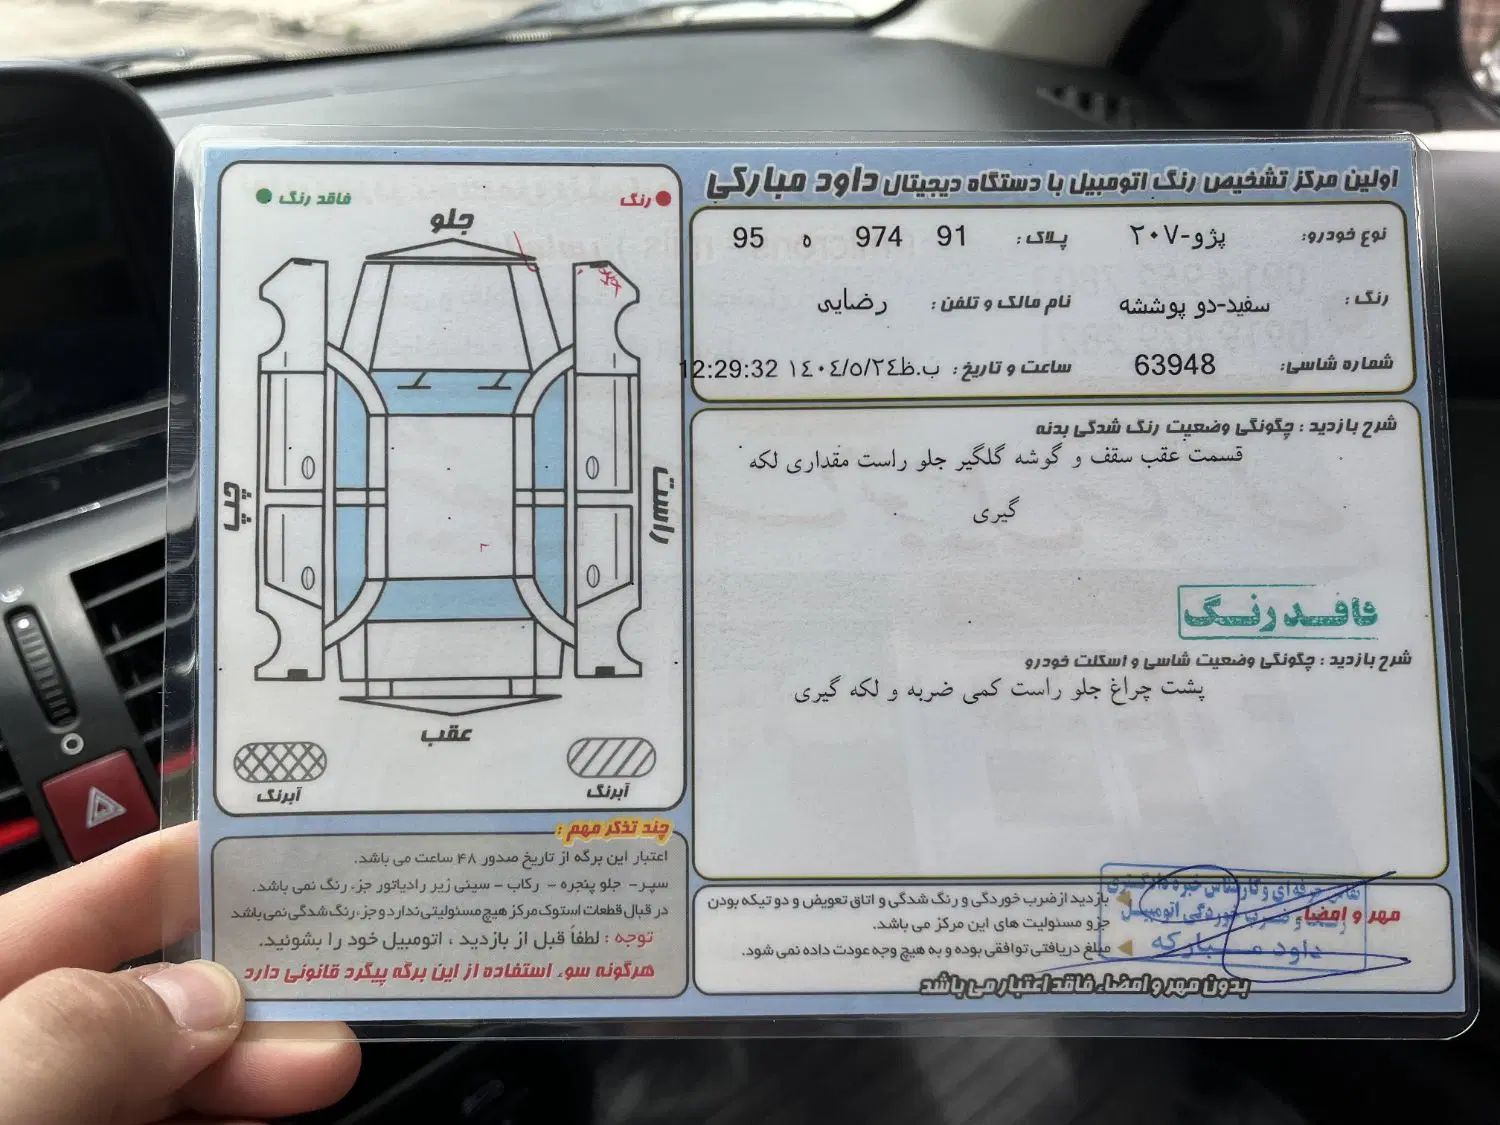 اولین مرکز تشخیص رنگ اتومبیل با دستگاه دیجیتال داود مبارکی
نوع خودرو: پژو-۲۰۷ پلاک: 91 974 ه 95
رنگ: سفید-دو پوششه نام مالک و تلفن: رضایی
شماره شاسی: 63948 ساعت و تاریخ: ب.ظ ۱۴۰۴/۵/۲۴ 12:29:32
شرح بازدید: چگونگی وضعیت رنگ شدگی بدنه
قسمت عقب سقف و گوشه گلگیر جلو راست مقداری لکه
گیری
فاقد رنگ
شرح بازدید: چگونگی وضعیت شاسی و اسکلت خودرو
پشت چراغ جلو راست کمی ضربه و لکه گیری
رنگ
فاقد رنگ
جلو
راست
چپ
عقب
آبرنگ
آبرنگ
چند تذکر مهم:
اعتبار این برگه از تاریخ صدور ۴۸ ساعت می باشد.
سپر - جلو پنجره - رکاب - سینی زیر رادیاتور جزء رنگ نمی باشد.
در قبال قطعات استوک مرکز هیچ مسئولیتی ندارد و جزء رنگ شدگی نمی باشد
توجه: لطفاً قبل از بازدید، اتومبیل خود را بشوئید.
هرگونه سوء استفاده از این برگه پیگرد قانونی دارد
مهر و امضاء
بازدید از ضرب خوردگی و رنگ شدگی و اتاق تعویض و دو تیکه بودن
جزو مسئولیت های این مرکز می باشد.
مبلغ دریافتی توافقی بوده و به هیچ وجه عودت داده نمی شود.
داود مبارکه
بدون مهر و امضاء فاقد اعتبار می باشد